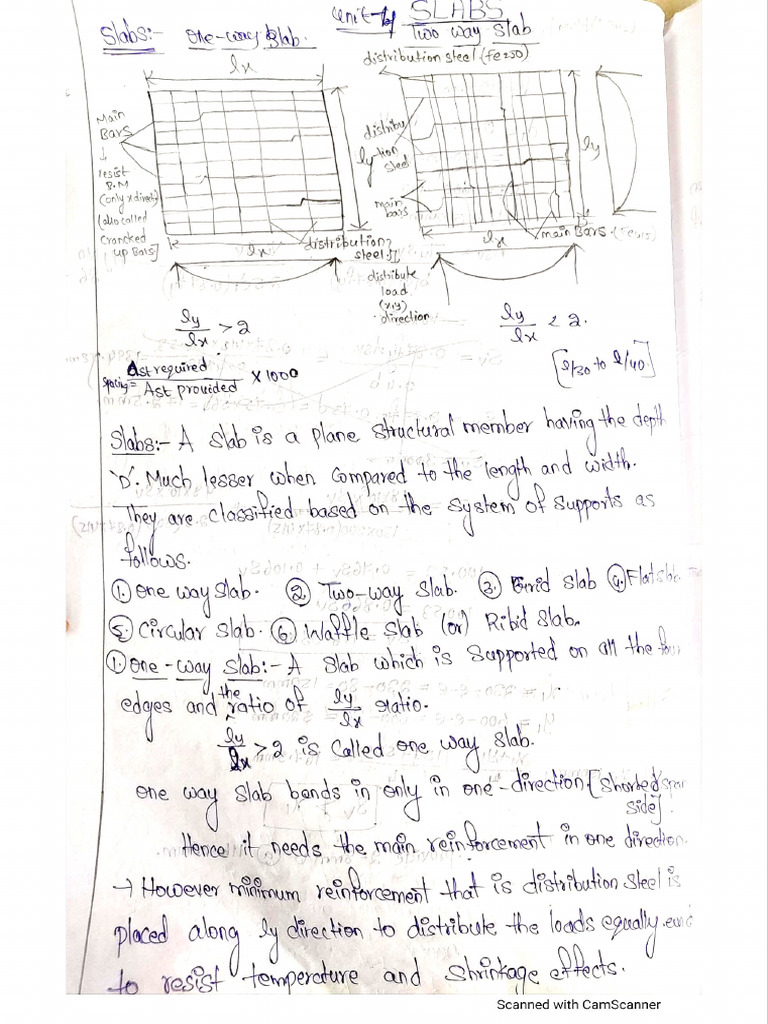 unit-
SLABS
Slabs:- one-way Slab. Two way Slab
distribution steel (fe250)
lx
Main
Bars
↓
resist
B.M
(only x direct)
(also called
Crancked
up Bars]
distribution
steel
lx
distribu
-tion
steel
ly
main
bars
ly
lx
main Bars (Fe415)
distribute
load
(x,y)
direction
ly/lx > 2
ly/lx < 2.
[l/30 to l/40.]
spacing = Ast required / Ast provided × 1000
Slabs:- A slab is a plane structural member having the depth
'D'. Much lesser when compared to the length and width.
They are classified based on the system of supports as
follows.
① one way slab. ② Two-way slab. ③ Grid slab ④ Flat slab
⑤ circular slab. ⑥ Waffle slab (or) Ribid slab.
① one-way slab:- A slab which is supported on all the four
edges and the ratio of ly/lx ratio.
ly/lx > 2 is called one way slab.
one way slab bends in only in one-direction [shorted span
side].
Hence it needs the main reinforcement in one direction.
→ However minimum reinforcement that is distribution steel is
placed along ly direction to distribute the loads equally and
to resist temperature and shrinkage effects.
Scanned with CamScanner